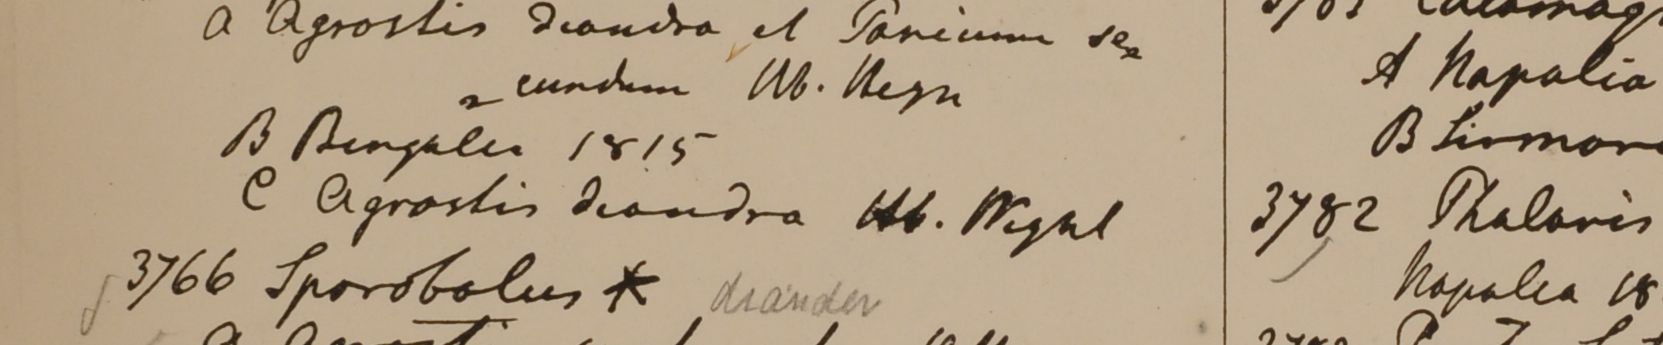 a Agrostis diandra et Panicum se=
=cundum Hb. Heyn
B Bengalia 1815
C Agrostis diandra Hb. Wight
3766 Sporobolus * diander
A Napalia
B Sirmore
3782 Phalaris
Napalea 18